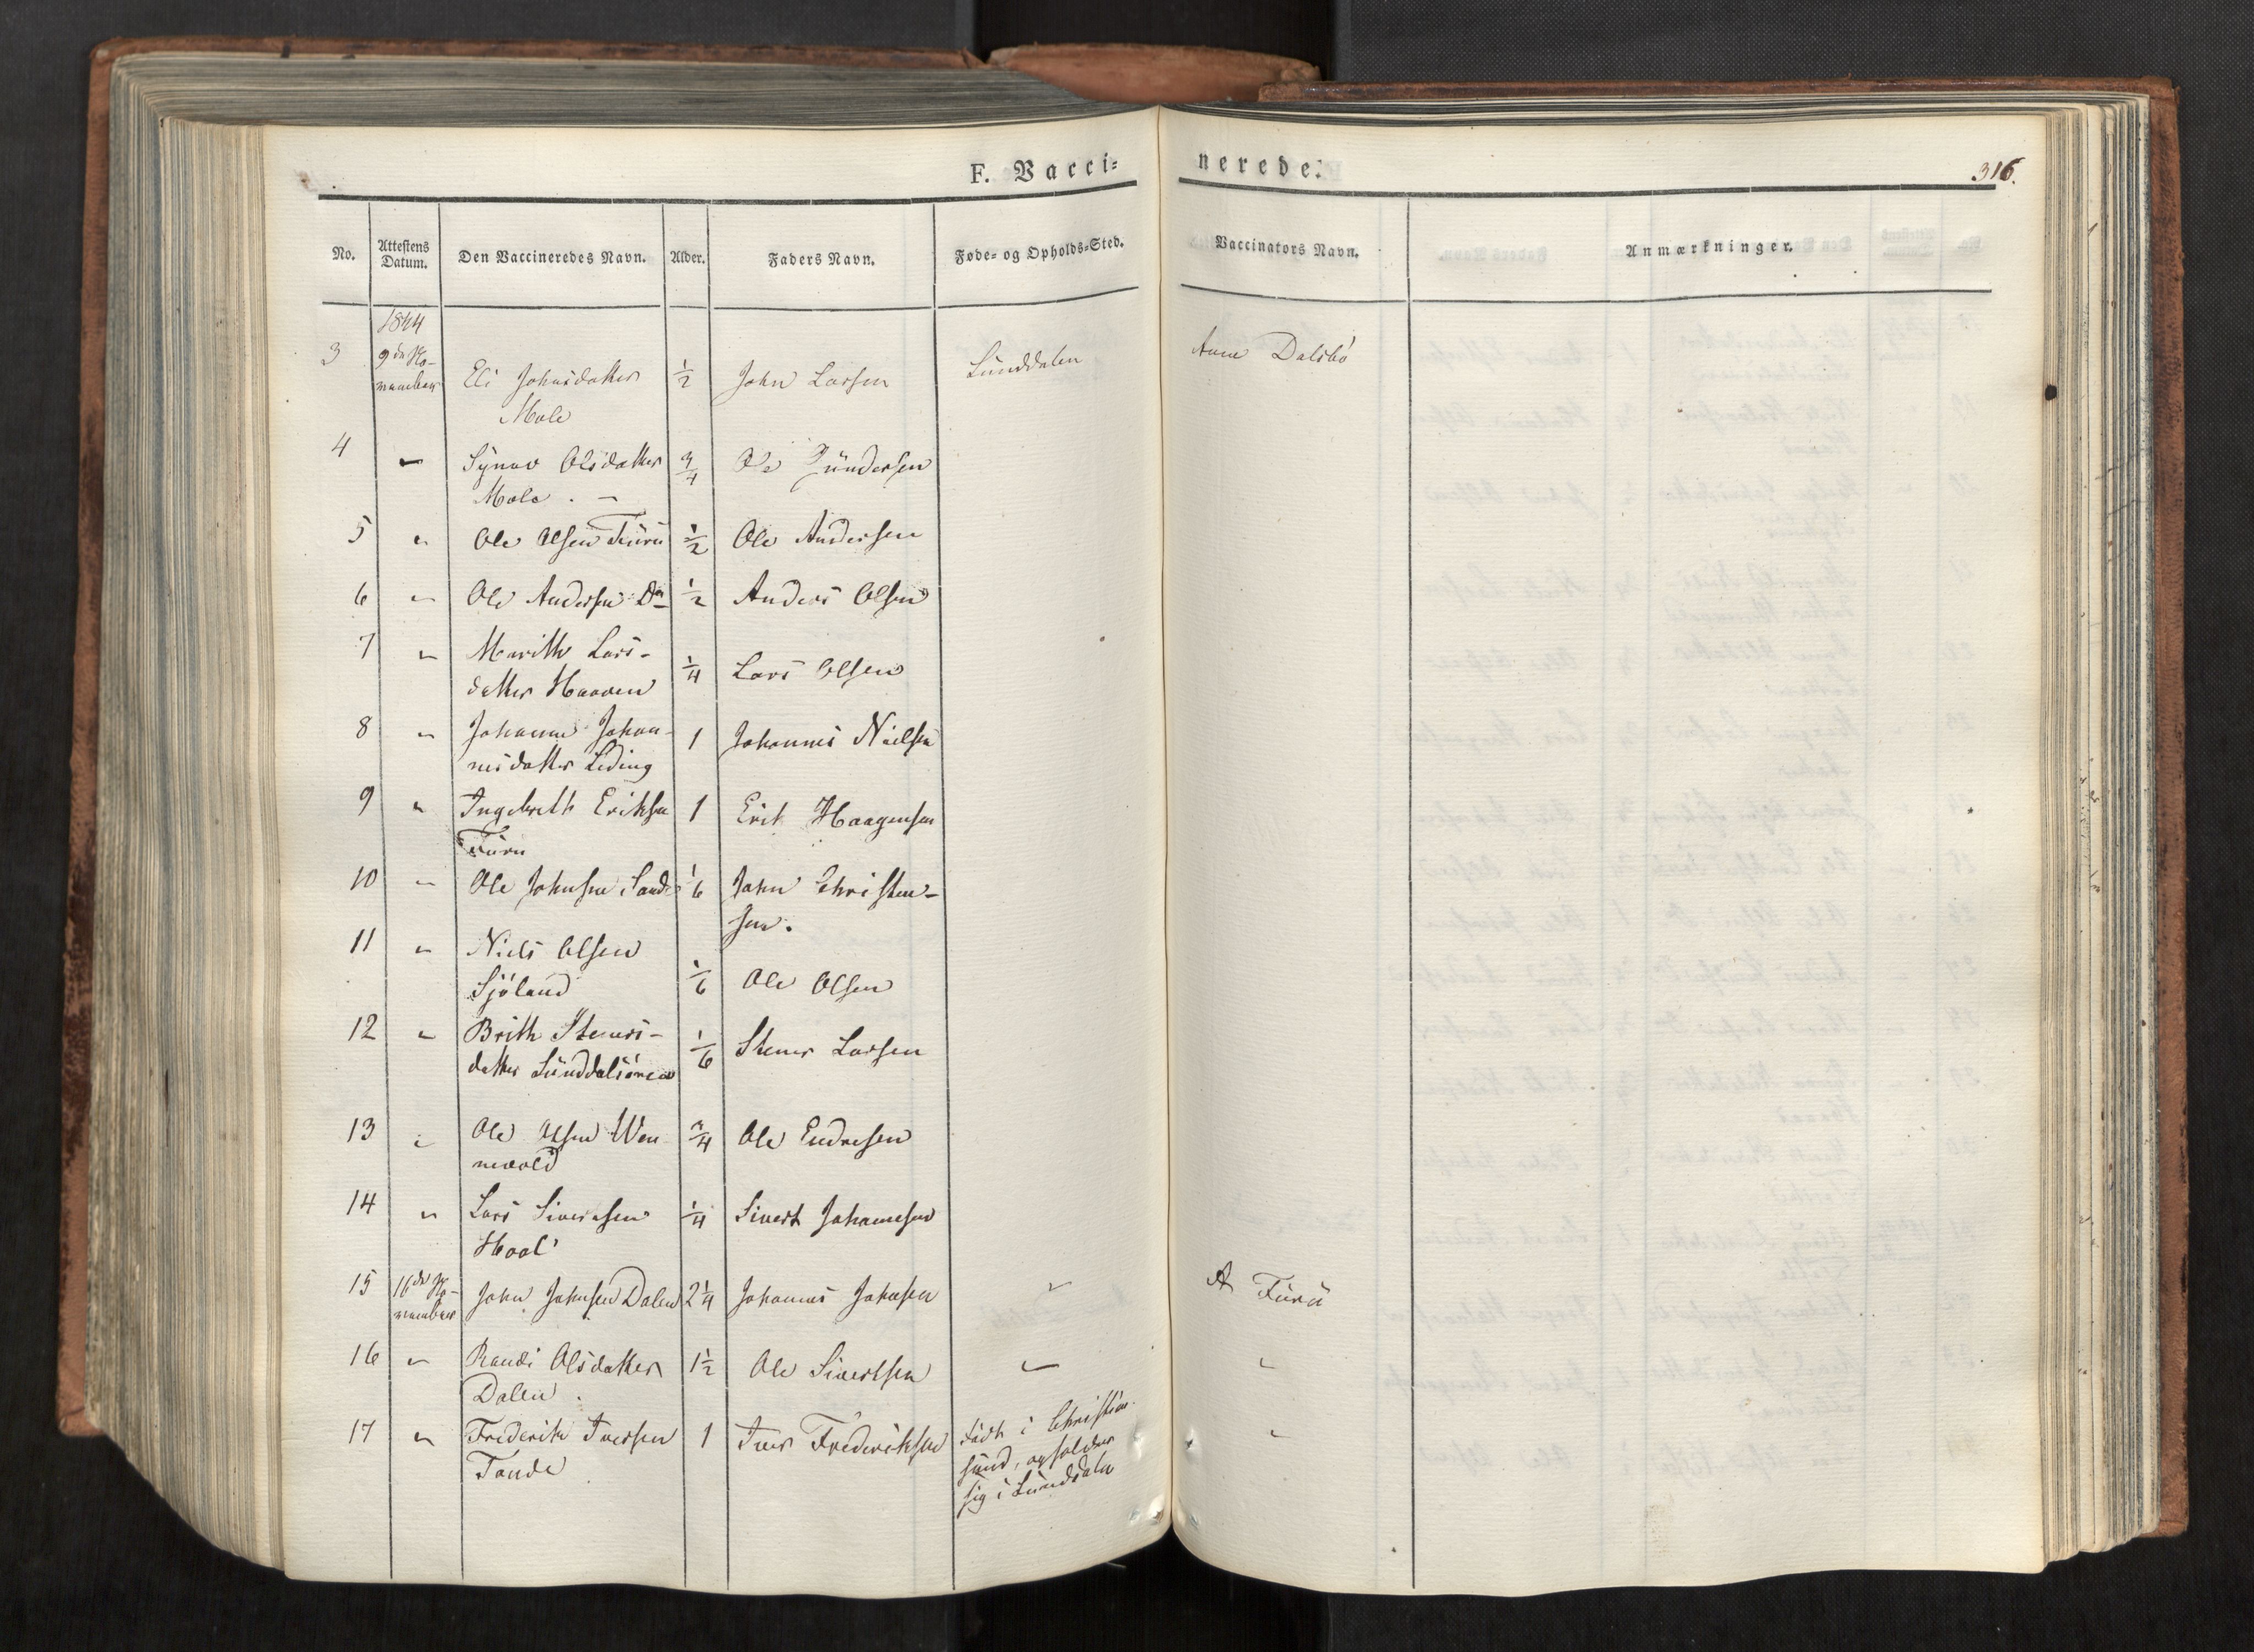 F. Vacci=
nerede.
316.
No.
Attestens
Datum.
Den Vaccineredes Navn.
Alder.
Faders Navn.
Føde= og Opholds=Sted.
Vaccinators Navn.
Anmærkninger.
1844
3 9de No- Eli Johnsdatter 1/2 John Larsen Sünddalen Anne Dalsbö
vember Mæle
4 " Synov Olsdatter 3/4 Ole Gündersen
Mæle . -
5 " Ole Olsen Fürü 1/2 Ole Andersen
6 " Ole Andersen Do 1/2 Anders Olsen
7 " Marith Lars-
datter Haaven 1/4 Lars Olsen
8 " Johanne Johan-
nesdatter Leding 1 Johannes Nielsen
9 " Ingebrith Eriksen 1 Erik Haagensen
Fürü
10 " Ole Johnsen Sande 1/6 John Christen-
sen.
11 " Niels Olsen
Sjöland 1/6 Ole Olsen
12 " Brith Steners-
datter Sünddalsören 1/6 Stener Larsen
13 " Ole Olsen Wen 3/4 Ole Endresen
nevold
14 " Lars Sivertsen 1/4 Sivert Johannesen
Hoel
15 16de No- John Johnsen Dalen 2 1/4 Johannes Johnsen " A Fürü
vember
16 " Randi Olsdatter 1 1/2 Ole Sivertsen " "
Dalen .
17 " Frederik Iversen 1 Iver Frederiksen födt i Christian- "
Tande sünd, opholder
sig i Sünddalen